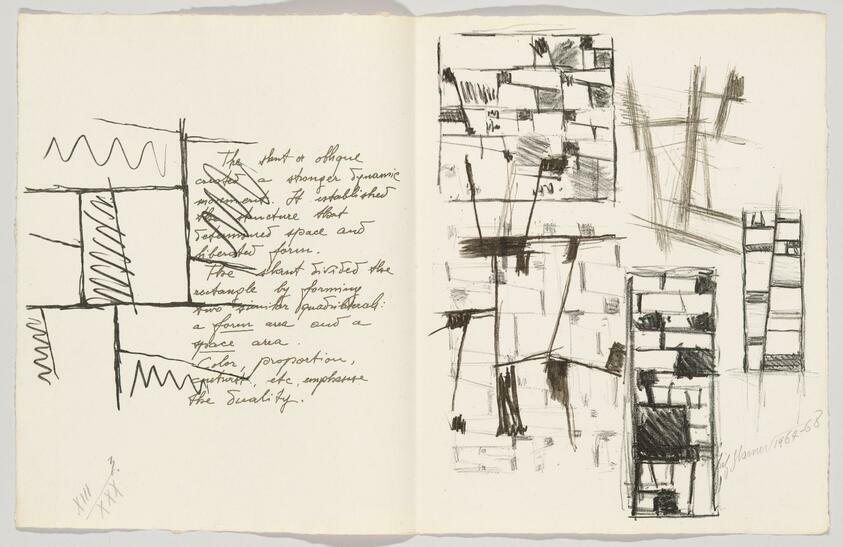 The slant or oblique
created a stronger dynamic
movement. It established
the structure that
determined space and
liberated form.
The slant divided the
rectangle by forming
two similar quadrilaterals:
a form area and a
space area.
Color, proportion,
contrast, etc. emphasise
the duality.
XIII 3.
XXX
1967-68